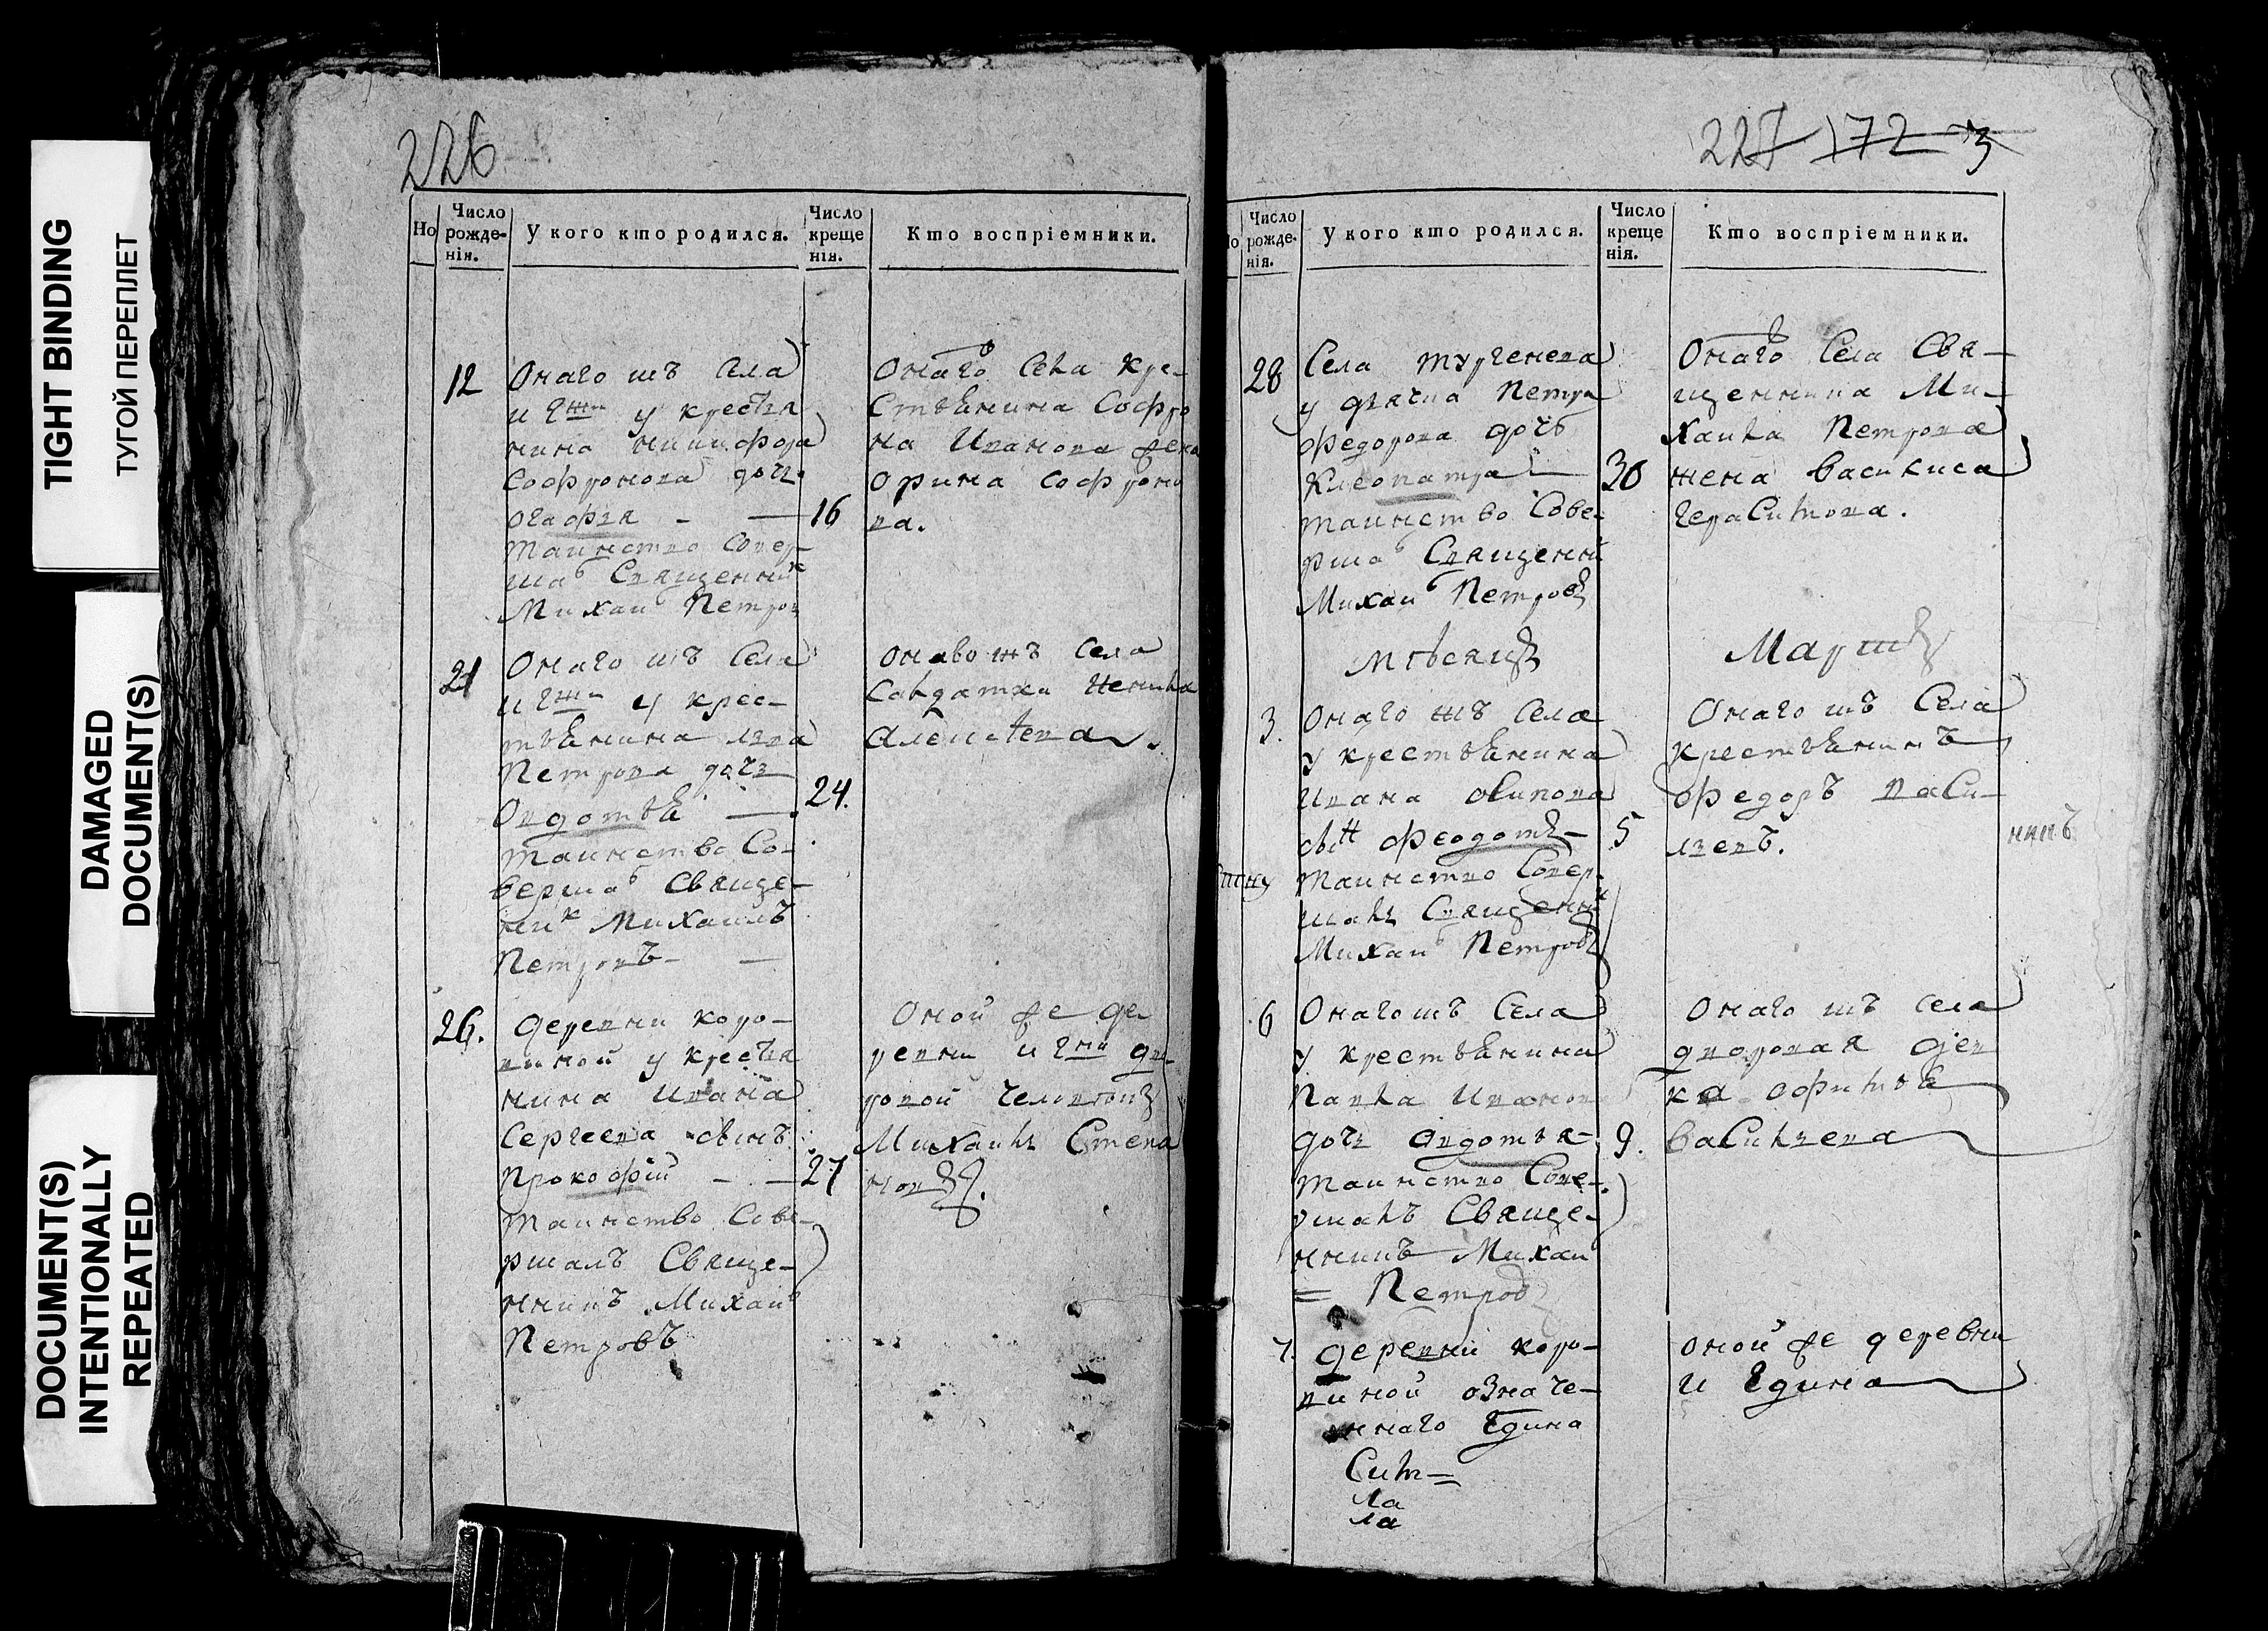 TIGHT BINDING
ТУГОЙ ПЕРЕПЛЕТ
DAMAGED
DOCUMENT(S)
DOCUMENT(S)
INTENTIONALLY
REPEATED
226
Но
Число
рожде-
нія.
У кого кто родился.
Число
креще
нія.
Кто воспріемники.
12
Онаго жъ Села
у крестья
нина никифора
Софронова дочь
огафия
16
таинство Совер-
ша Священник
Михаил Петров
Онаго Села кре-
стьянина Софро
на Иванова жена
орина Софроно
ва.
21
Онаго жъ Села
у крес-
тьянина
Петрова дочь
Овдотья
24.
таинство Со-
верша Свяще-
ник Михаилъ
Петровъ
онаво жъ Села
Салдатка
Алексеева
26.
деревни коро-
виной у крестья
нина Ивана
Сергеева сынъ
Прокофій
27
таинство Сове-
ршалъ Свяще-
нникъ Михаил
Петровъ
Оной же де
ревни и гжи дво
ровой человекъ
Михаилъ Степа
новъ.
227 172 3
но
Число
рожде-
нія.
У кого кто родился.
Число
креще
нія.
Кто воспріемники.
28
Села тургенева
у дьячка Петра
Федорова дочь
Клеопатра
30
таинство Сове-
рша Священник
Михаил Петровъ
Онаго Села Свя-
щенника Ми-
хаила Петрова
жена василиса
герасимова.
Мѣсяцъ
Мартъ
3.
Онаго жъ Села
у крестьянина
Ивана осипова
сынъ Феодотъ
5
таинство Совер-
шалъ Священник
Михаил Петровъ
Онаго жъ Села
крестьянинъ
Федоръ васи-
льевъ.
6
Онаго жъ Села
у крестьянина
Павла Иванова
дочь Овдотья
9.
таинство Сове-
ршалъ Свяще-
нникъ Михаил
Петров
Онаго жъ села
дворовая дев
ка офимья
васильева
7.
деревни коро-
виной означе-
ннаго Едина
оной же деревни
и Едина